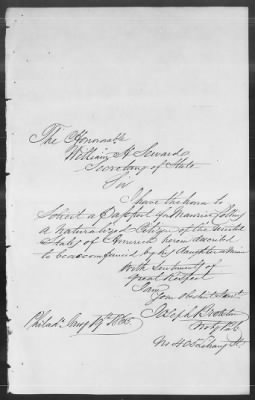 The Honorable
William H Seward
Secretary of State
Sir
I have the honor to
solicit a Passport for
a naturalized Citizen of the United
States of America herein described
to be accompanied by his daughter a minor
With Sentiments of
great Respect
I am
Your Obedient Servt.
Joseph
Noty Pub
No 40
Philada. Aug 19th 186